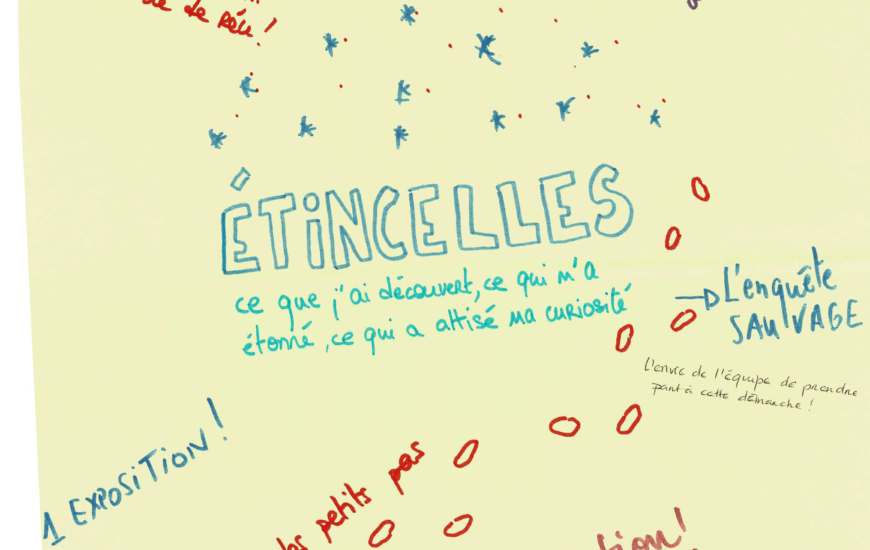 de réu!
ÉTiNCELLES
ce que j'ai découvert, ce qui m'a
étonné, ce qui a attisé ma curiosité
L'enquête
SAUVAGE
L'envie de l'équipe de prendre
part à cette démarche!
1 EXPOSiTiON!
petits pas